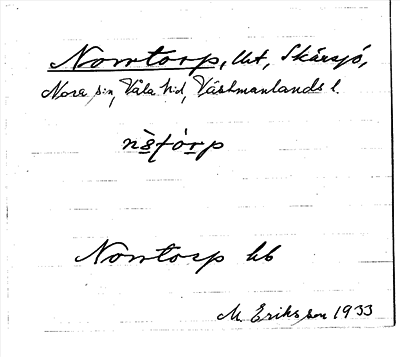 Norrtorp, Utt, Skärsjö,
Nora sn, Våla hd, Västmanlands l.
Norrtorp kb
M. Eriksson 1933